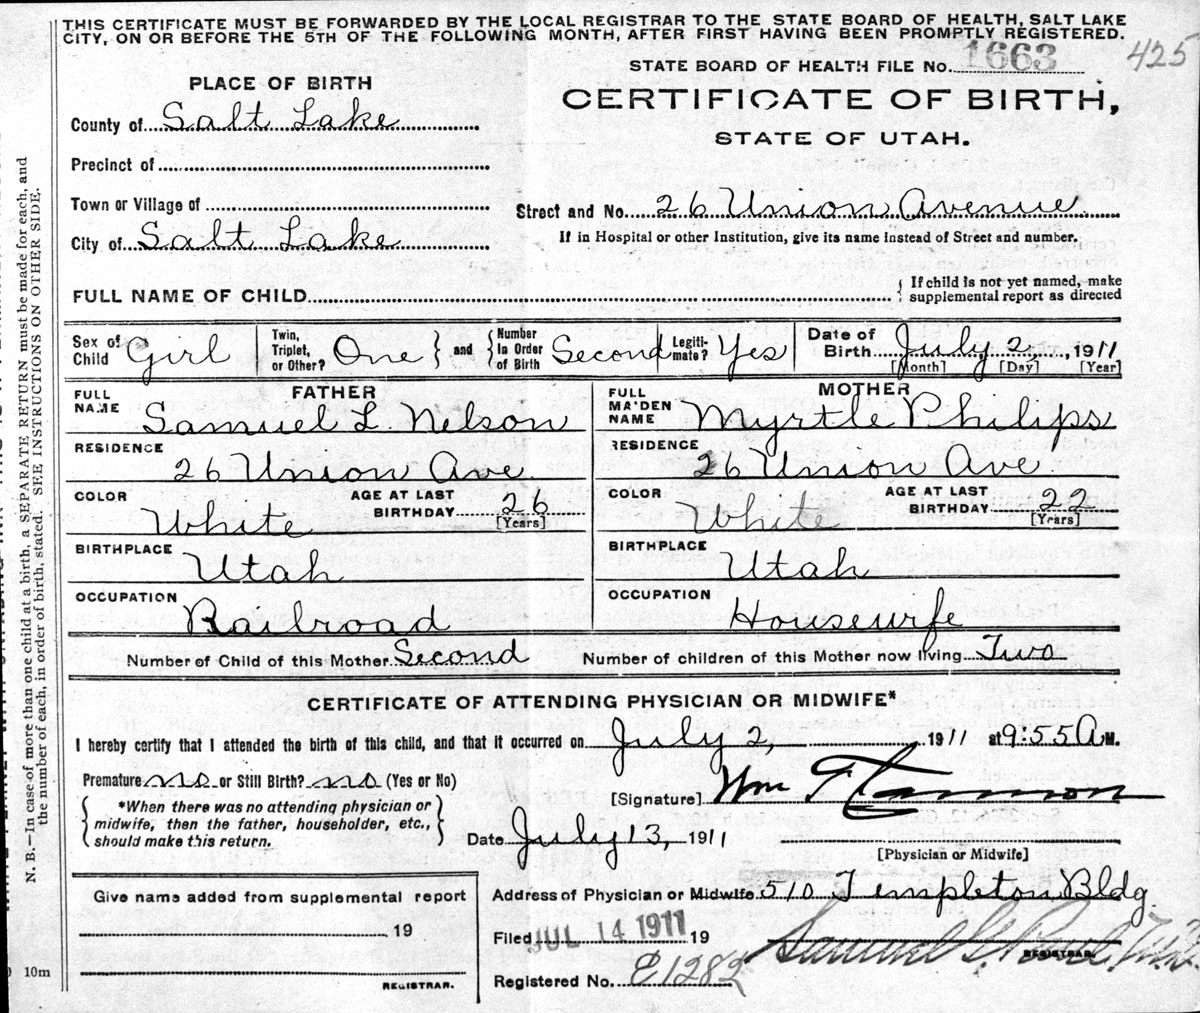 THIS CERTIFICATE MUST BE FORWARDED BY THE LOCAL REGISTRAR TO THE STATE BOARD OF HEALTH, SALT LAKE
CITY, ON OR BEFORE THE 5TH OF THE FOLLOWING MONTH, AFTER FIRST HAVING BEEN PROMPTLY REGISTERED.
STATE BOARD OF HEALTH FILE No. 1663 425
PLACE OF BIRTH
CERTIFICATE OF BIRTH,
STATE OF UTAH.
County of Salt Lake
Precinct of
Town or Village of
Street and No. 26 Union Avenue
City of Salt Lake
If in Hospital or other Institution, give its name instead of Street and number.
FULL NAME OF CHILD
If child is not yet named, make
supplemental report as directed
Sex of Child Girl
Twin, Triplet, or Other? One
and
Number in Order of Birth Second
Legiti-mate? Yes
Date of Birth July 2, 1911
[Month] [Day] [Year]
FATHER
FULL NAME Samuel L. Nelson
RESIDENCE 26 Union Ave
COLOR White
AGE AT LAST BIRTHDAY 26
[Years]
BIRTHPLACE Utah
OCCUPATION Railroad
MOTHER
FULL MAIDEN NAME Myrtle Philips
RESIDENCE 26 Union Ave
COLOR White
AGE AT LAST BIRTHDAY 22
[Years]
BIRTHPLACE Utah
OCCUPATION Housewife
Number of Child of this Mother Second
Number of children of this Mother now living Two
CERTIFICATE OF ATTENDING PHYSICIAN OR MIDWIFE*
I hereby certify that I attended the birth of this child, and that it occurred on July 2, 1911 at 9:55 A M.
Premature no or Still Birth? no (Yes or No)
*When there was no attending physician or
midwife, then the father, householder, etc.,
should make this return.
[Signature] Wm T Cannon
Date July 13, 1911
[Physician or Midwife]
Give name added from supplemental report
19
REGISTRAR.
Address of Physician or Midwife 510 Templeton Bldg.
Filed JUL 14 1911 19
Samuel G. Paul
REGISTRAR.
Registered No. E1282
N. B.—In case of more than one child at a birth, a SEPARATE RETURN must be made for each, and
the number of each, in order of birth, stated. SEE INSTRUCTIONS ON OTHER SIDE.
10m